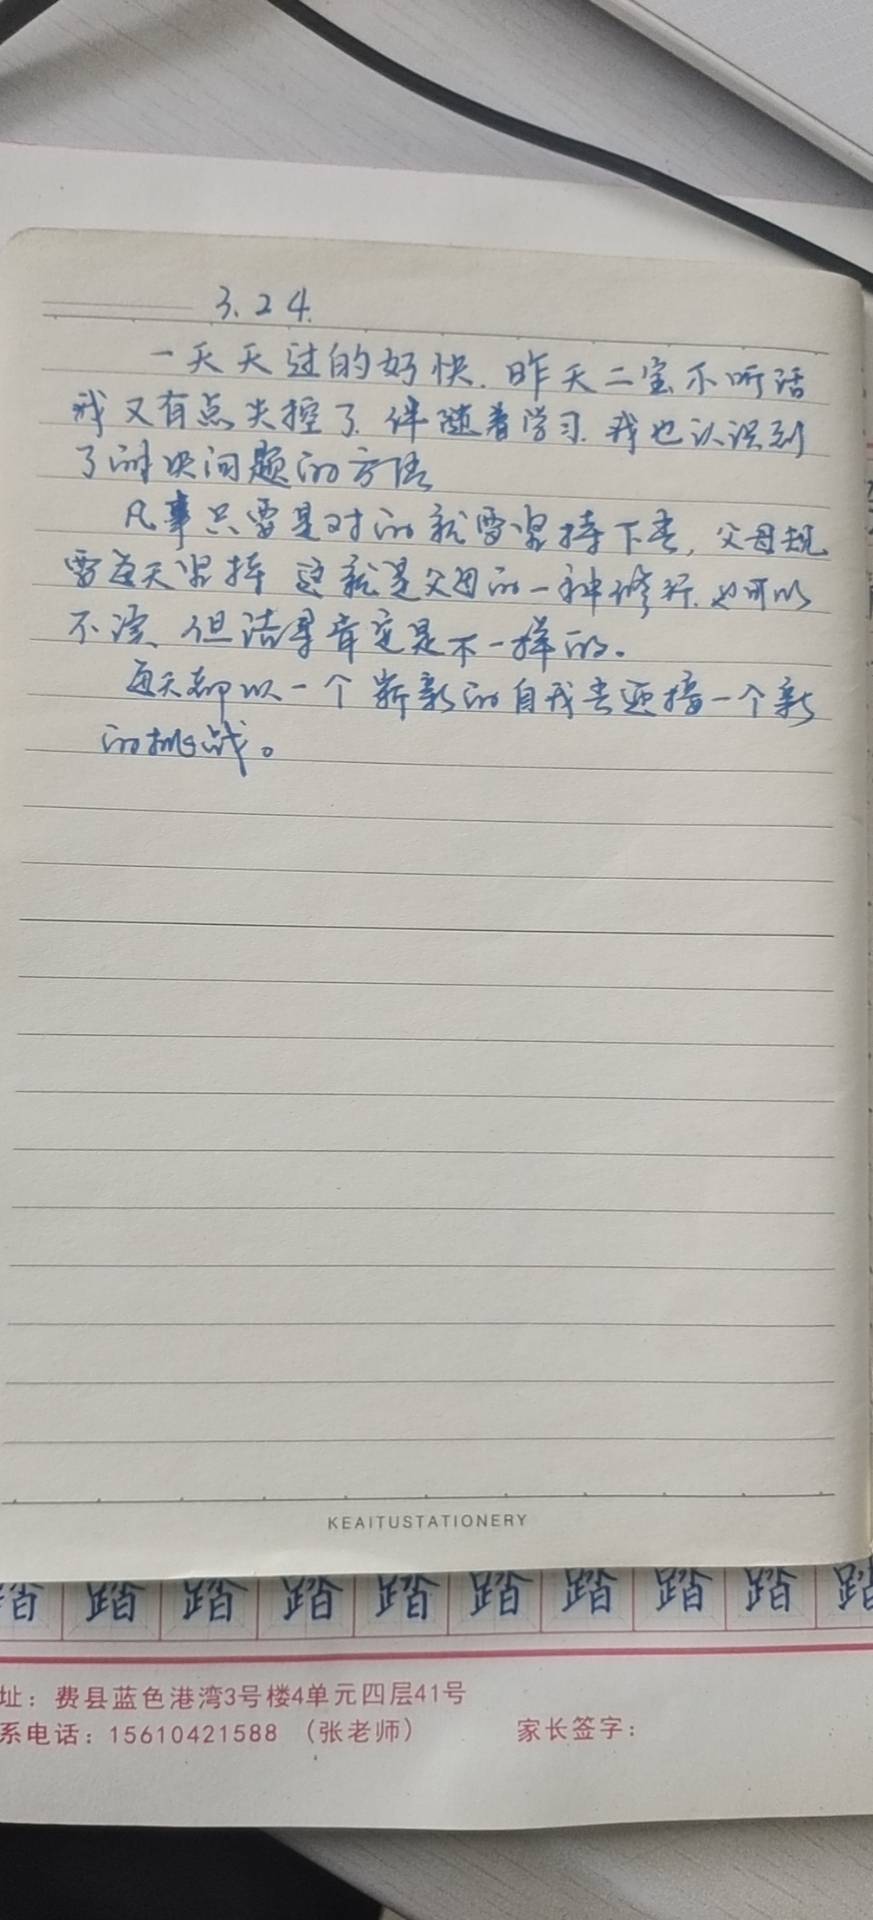 3.24.
一天天过的好快.昨天二宝不听话
我又有点失控了.伴随着学习.我也认识到
了解决问题的方法
凡事只要是对的就需坚持下去,父母规
需每天坚持 这就是父母的一种修行.也可以
不读.但结果肯定是不一样的。
每天都以一个崭新的自我去迎接一个新
的挑战。
KEAITUSTATIONERY
踏 踏 踏 踏 踏 踏 踏 踏 踏 踏
址：费县蓝色港湾3号楼4单元四层41号
系电话：15610421588 （张老师） 家长签字：